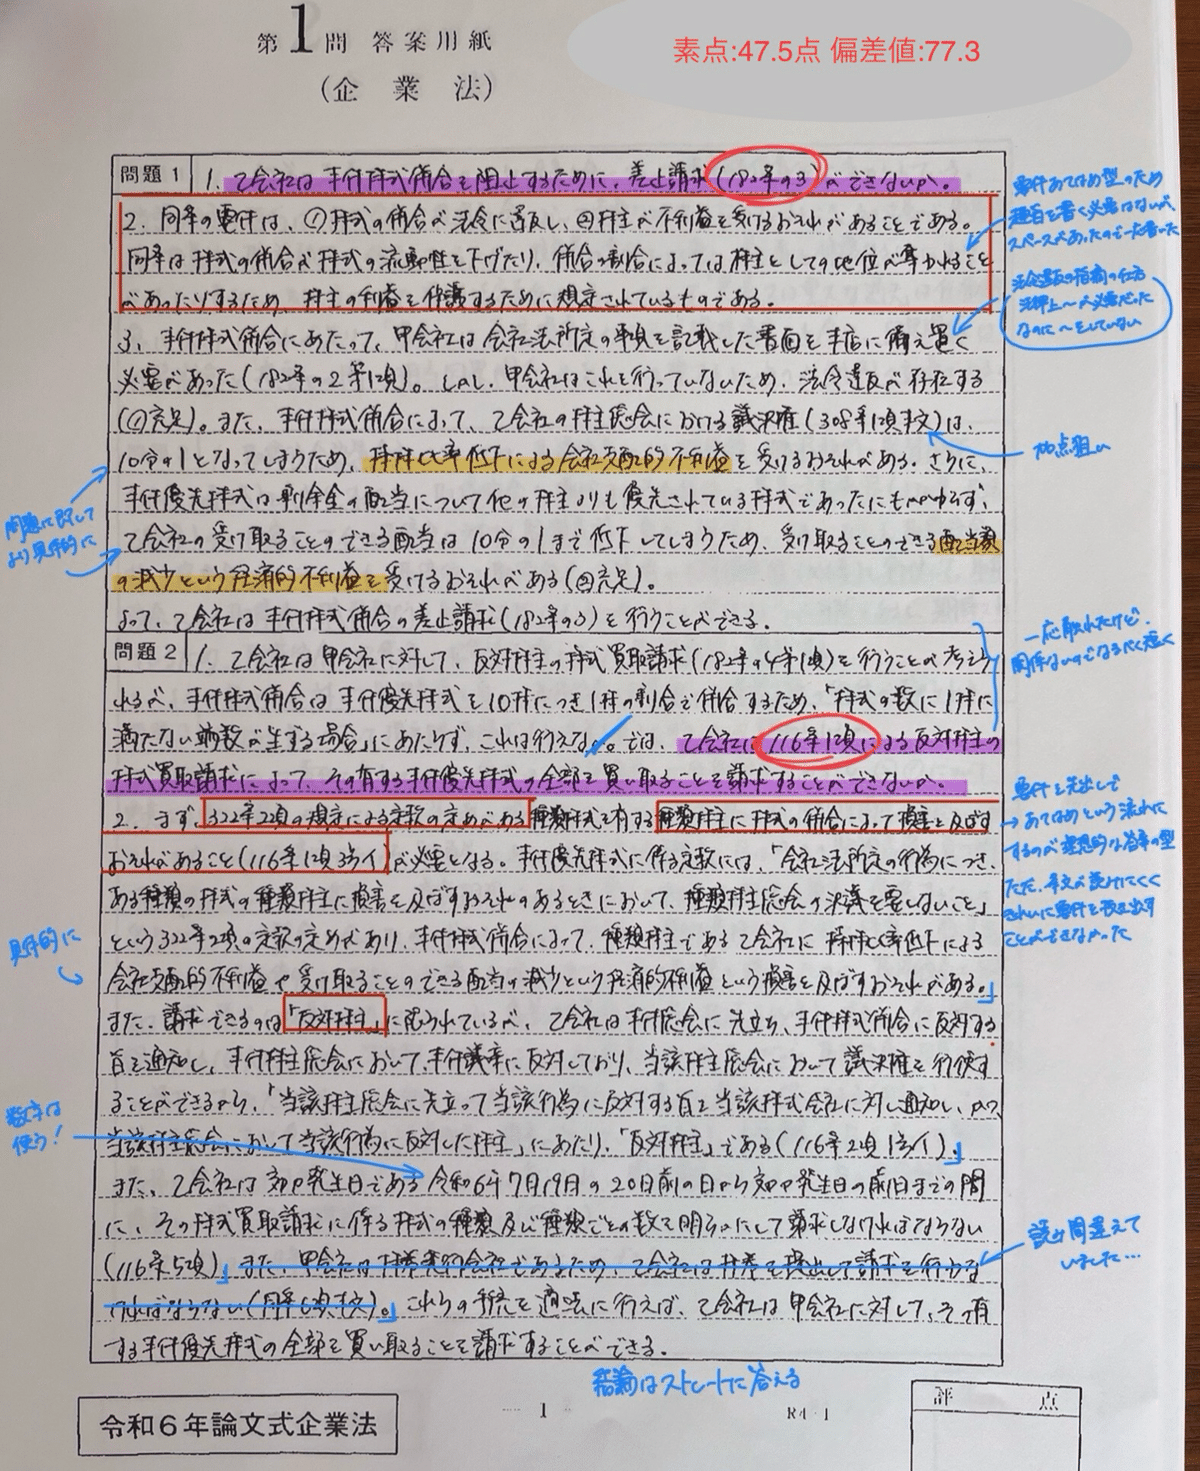 第1問 答案用紙
(企業法)
素点:47.5点 偏差値:77.3
問題1
1. 乙会社は本件株式併合を阻止するために、差止請求(182条の3)ができないか。
2. 同条の要件は、①株式の併合が法令に違反し、②株主が不利益を受けるおそれがあることである。
同条は株式の併合が株式の流動性を下げたり、併合の割合によっては株主としての地位が奪われること
があったりするため、株主の利益を保護するために規定されているものである。
3. 本件株式併合にあたって、甲会社は会社法所定の事項を記載した書面を本店に備え置く
必要があった(182条の2第1項)。しかし、甲会社はこれを行っていないため、法令違反が存在する
(①充足)。また、本件株式併合によって、乙会社の株主総会における議決権(308条1項本文)は、
10分の1となってしまうため、持株比率低下による会社支配的不利益を受けるおそれがある。さらに、
本件優先株式は剰余金の配当について他の株主よりも優先されている株式であったにもかかわらず、
乙会社の受け取ることのできる配当は10分の1まで低下してしまうため、受け取ることのできる配当額
の減少という経済的不利益を受けるおそれがある(②充足)。
よって、乙会社は本件株式併合の差止請求(182条の3)を行うことができる。
要件あてはめ型のため
趣旨を書く必要はないが、
スペースがあったので一応書いた
法令違反の指摘の仕方
法律上〜が必要だった
なのに〜をしていない
加点狙い
問題に即して
より具体的に
問題2
1. 乙会社は甲会社に対して、反対株主の株式買取請求(182条の4第1項)を行うことが考えら
れるが、本件株式併合は本件優先株式を10株につき1株の割合で併合するため、「株式の数に1株に
満たない端数が生ずる場合」にあたらず、これは行えない。では、乙会社は116条1項による反対株主の
株式買取請求によって、その有する本件優先株式の全部を買い取ることを請求することができないか。
2. まず、322条2項の規定による定款の定めがある種類株式を有する種類株主に株式の併合によって損害を及ぼす
おそれがあること(116条1項3号イ)が必要となる。本件優先株式に係る定款には、「会社法所定の行為につき、
ある種類の株式の種類株主に損害を及ぼすおそれのあるときにおいて、種類株主総会の決議を要しないこと」
という322条2項の定款の定めがあり、本件株式併合によって、種類株主である乙会社に持株比率低下による
会社支配的不利益や受け取ることのできる配当の減少という経済的不利益という損害を及ぼすおそれがある。」
また、請求できるのは「反対株主」に限られているが、乙会社は本件総会に先立ち、本件株式併合に反対する
旨を通知し、本件株主総会において、本件議案に反対しており、当該株主総会において議決権を行使す
ることができるから、「当該株主総会に先立って当該行為に反対する旨を当該株式会社に対し通知し、かつ、
当該株主総会において当該行為に反対した株主」にあたり、「反対株主」である(116条2項1号イ)。」
また、乙会社は効力発生日である令和6年7月19日の20日前の日から効力発生日の前日までの間
に、その株式買取請求に係る株式の種類及び種類ごとの数を明らかにして請求しなければならない
(116条5項)」また、甲会社は株券発行会社であるため、乙会社は株券を提出して請求を行わな
ければならない(同条6項本文)。」これらの手続を適法に行えば、乙会社は甲会社に対して、その有
する本件優先株式の全部を買い取ることを請求することができる。
一応取れたけど、
関係ないのでなるべく短く
要件を先出しで
→あてはめという流れに
するのが理想的な答案の型
ただ、条文が読みにくく
きれいに要件を抜き出す
ことができなかった
具体的に
数字は
使う!
読み間違えて
いました…
結論はストレートに答える
令和6年論文式企業法
1
R4-1
評 点